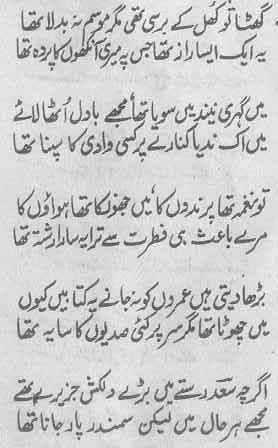 گھٹا تو کُھل کے برسی تھی مگر موسم نہ بدلا تھا
یہ ایک ایسا راز تھا جس پہ مری آنکھوں کا پردہ تھا
میں گہری نیند میں سویا تھا مجھے بادل اُٹھا لائے
میں اک ندیا کنارے پر کسی وادی کا سپنا تھا
تو نغمہ تھا پرندوں کا، میں جھونکا تھا ہواؤں کا
مرے باعث ہی فطرت سے ترا یہ سارا رشتہ تھا
بڑھا دیتی ہیں عمروں کو نہ جانے یہ کتابیں کیوں
میں چھوٹا تھا مگر سر پر کئی صدیوں کا سایہ تھا
اگرچہ سعدؔ رستے میں بڑے دلکش جزیرے تھے
مجھے ہر حال میں لیکن سمندر پار جانا تھا